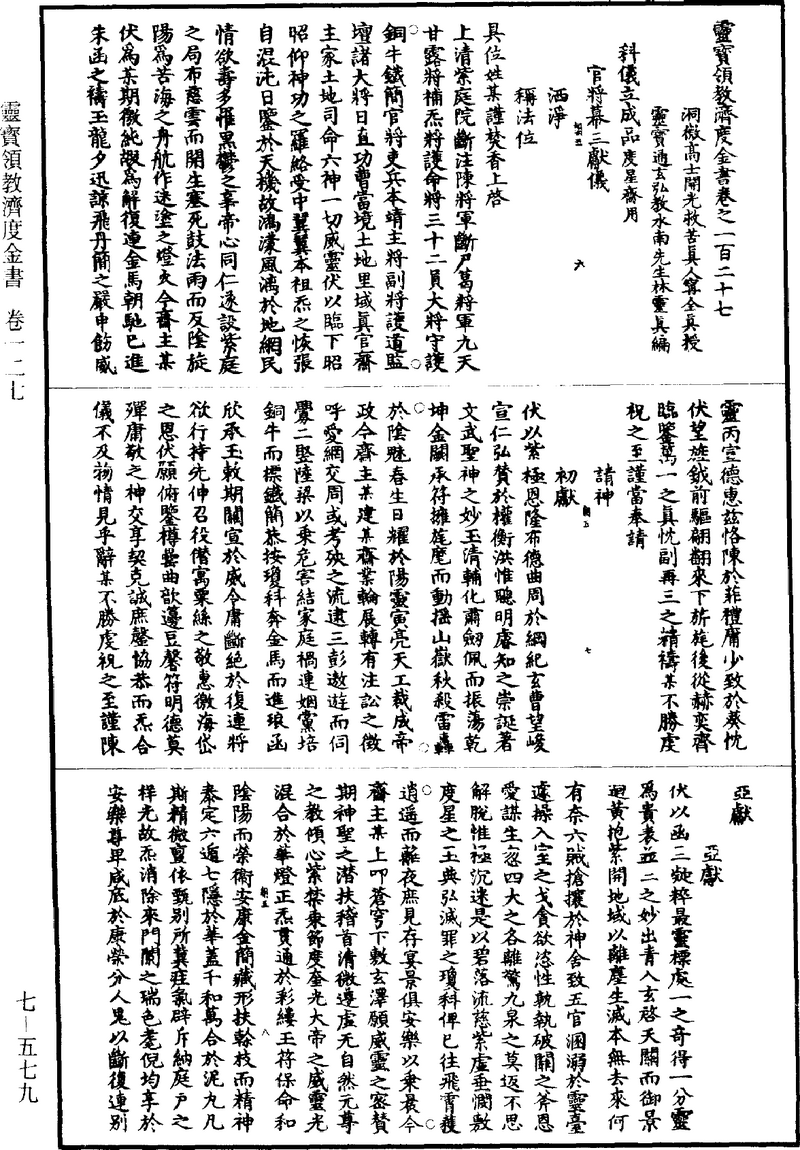 靈寶領教濟度金書卷之一百二十七
洞微高士開光救苦真人甯全真授
靈寶通玄弘教水南先生林靈真編
科儀立成品度星齋用
官將幕三獻儀
洒淨
稱法位
具位姓某謹焚香上啓
上清紫庭院斷注陳將軍斷尸葛將軍九天
甘露將補炁將護命將三十二員大將守護
銅牛鐵簡官將吏兵本靖主將副將護道監
壇諸大將日直功曹當境土地里域真官齋
主家土地司命六神一切威靈伏以臨下昭
昭仰神功之羅絡受中翼翼本祖炁之恢張
自混沌日鑒於天機故鴻濛風漓於地網民
情欲壽多罹黑鬱之辜帝心同仁遂設紫庭
之局布慈雲而開生塞死鼓法雨而反陰旋
陽為苦海之舟航作迷塗之燈火今齋主某
伏為某期徼純嘏為解復連金馬朝馳已進
朱函之禱玉龍夕迅諒飛丹簡之嚴申飭威
靈丙宣德惠茲恪陳於菲禮庸少致於葵忱
伏望旌鉞前驅翩翩來下旂旄後從赫奕齊
臨鑒萬一之真忱副再三之禱某不勝虔
祝之至謹當奉請
請神
初獻
伏以紫極恩隆布德曲周於綱紀玄曹望峻
宣仁弘贊於權衡洪惟聰明睿知之崇誕著
文武聖神之妙玉清輔化肅劒佩而振蕩乾
坤金闕承符擁旄麾而動搖山嶽秋殺雷轟
於陰魅春生日耀於陽靈寅亮天工裁成帝
政今齋主某建某齋業輪展轉有注訟之徵
呼愛網交周或考殃之流逮三彭遨遊而伺
釁二豎陸梁以乘危害結家庭禍連姻黨培
銅牛而標鐵簡恭按瓊科奔金馬而進琅函
欣承玉敕期關宣於威令庸斷絕於復連將
欲行持先伸召役僭寓粟絲之敬惠徼海岱
之恩伏願俯鑒樽罍曲歆籩豆馨符明德莫
殫庸敬之神交享契克誠庶罄協恭而炁合
儀不及物情見乎辭某不勝虔祝之至謹陳
亞獻
亞獻
伏以函三凝粹最靈標處一之奇得一分靈
為貴表並二之妙出青入玄啓天關而御景
迴黃抱紫開地域以離塵生滅本無去來何
有奈六賊搶攘於神舍致五官溷溺於靈臺
遽操入室之戈貪欲恣性軌執破關之斧恩
愛謀生寇四大之各離驚九泉之莫返不思
解脫惟極沉迷是以碧落流慈紫虛垂憫敷
度星之玉典弘滅罪之瓊科俾已往飛霄獲
逍遥而離夜庶見存宴景俱安樂以乘晨今
齋主某上叩蒼穹下敷玄澤願威靈之密贊
期神聖之潛扶稽首清微邊虛无自然元尊
之教傾心紫禁秉節度奎光大帝之威靈光
混合於華燈正炁貫通於彩縷玉符保命和
陰陽而榮衛安康金簡藏形扶榦枝而精神
泰定六遁七隱於華蓋千和萬合於泥丸凡
斯精微亶依甄別所冀疰氣辟斥納庭戶之
祥光故炁消除來門閫之瑞色耄倪均享於
安樂尊卑咸底於康榮分人鬼以斷復連別
靈寶領教濟度金書 卷一二七
七－五七九